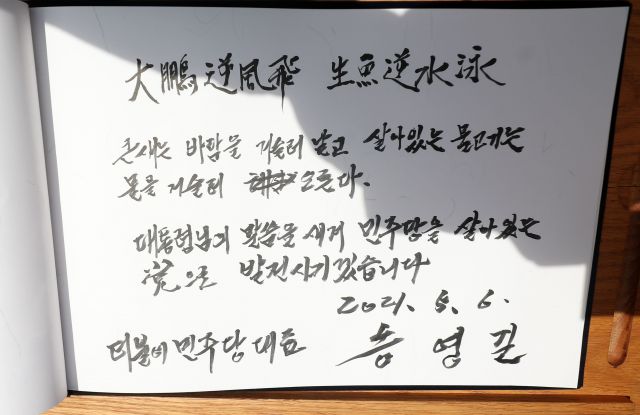 大鵬逆風飛 生魚逆水泳
큰새는 바람을 거슬러 날고 살아있는 물고기는
물을 거슬러 오른다.
대통령님의 말씀을 새겨 민주당을 살아있는
党으로 발전시키겠습니다
2021. 5. 6.
더불어민주당대표 송영길